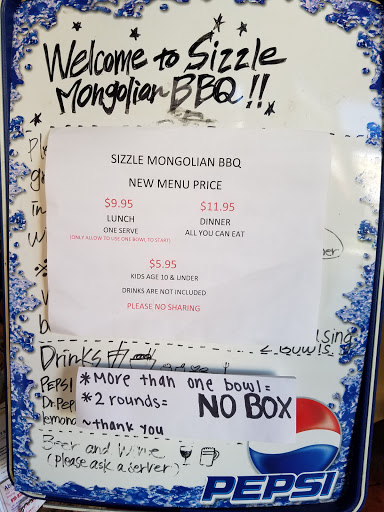 Welcome to Sizzle
Mongolian BBQ!!
SIZZLE MONGOLIAN BBQ
NEW MENU PRICE
$9.95 $11.95
LUNCH DINNER
ONE SERVE ALL YOU CAN EAT
(ONLY ALLOW TO USE ONE BOWL TO START)
$5.95
KIDS AGE 10 & UNDER
DRINKS ARE NOT INCLUDED
PLEASE NO SHARING
Drinks
PEPSI
*More than one bowl=
*2 rounds= NO BOX
~thank you
Dr.Pep
lemona
Beer and Wine
(please ask a server)
PEPSI